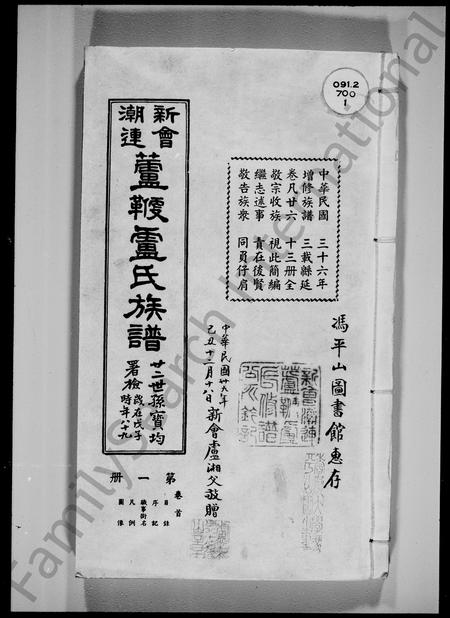 091.2
700
1
新會
潮連
蘆鞭盧氏族譜
廿二世孫寶均
署檢
歲在戊子
第一册
卷首
目錄
序記
職事銜名
凡例
圖像
中華民國 三十六年
增修族譜 三載緜延
卷凡廿六 十三册全
敬宗收族 視此簡編
繼志述事 責在後賢
敬告族衆 同負仔肩
馮平山圖書館惠存
己丑十二月十八日新會盧湘父敬贈
新會潮連
蘆鞭盧
氏修譜
FamilySearch International